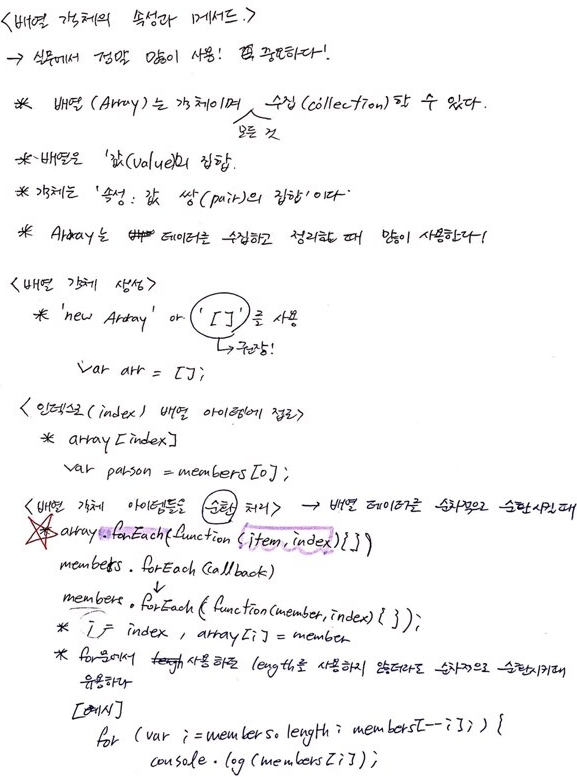 <배열 객체의 속성과 메서드.>
→ 실무에서 정말 많이 사용! 꼭 중요하다!
* 배열(Array)는 객체이며 수집(collection)할 수 있다.
모든 것
* 배열은 '값(value)의 집합.
* 객체는 '속성: 값 쌍(pair)의 집합'이다.
* Array는 데이터를 수집하고 정리할 때 많이 사용한다!
<배열 객체 생성>
* 'new Array' or '[]'를 사용
→ 권장!
var arr = [];
<인덱스로(index) 배열 아이템에 접근>
* array[index]
var parson = members[0];
<배열 객체 아이템들을 순환 처리> → 배열 데이터를 순차적으로 순환시킬때
* array.forEach(function (item, index){ })
members.forEach(callback)
↓
members.forEach(function(member, index){ });
* i = index, array[i] = member
* for문에서 사용하는 length를 사용하지 않더라도 순차적으로 순환시키때
유용하다
[예시]
for (var i=members.length; members[--i];) {
console.log(members[i]);